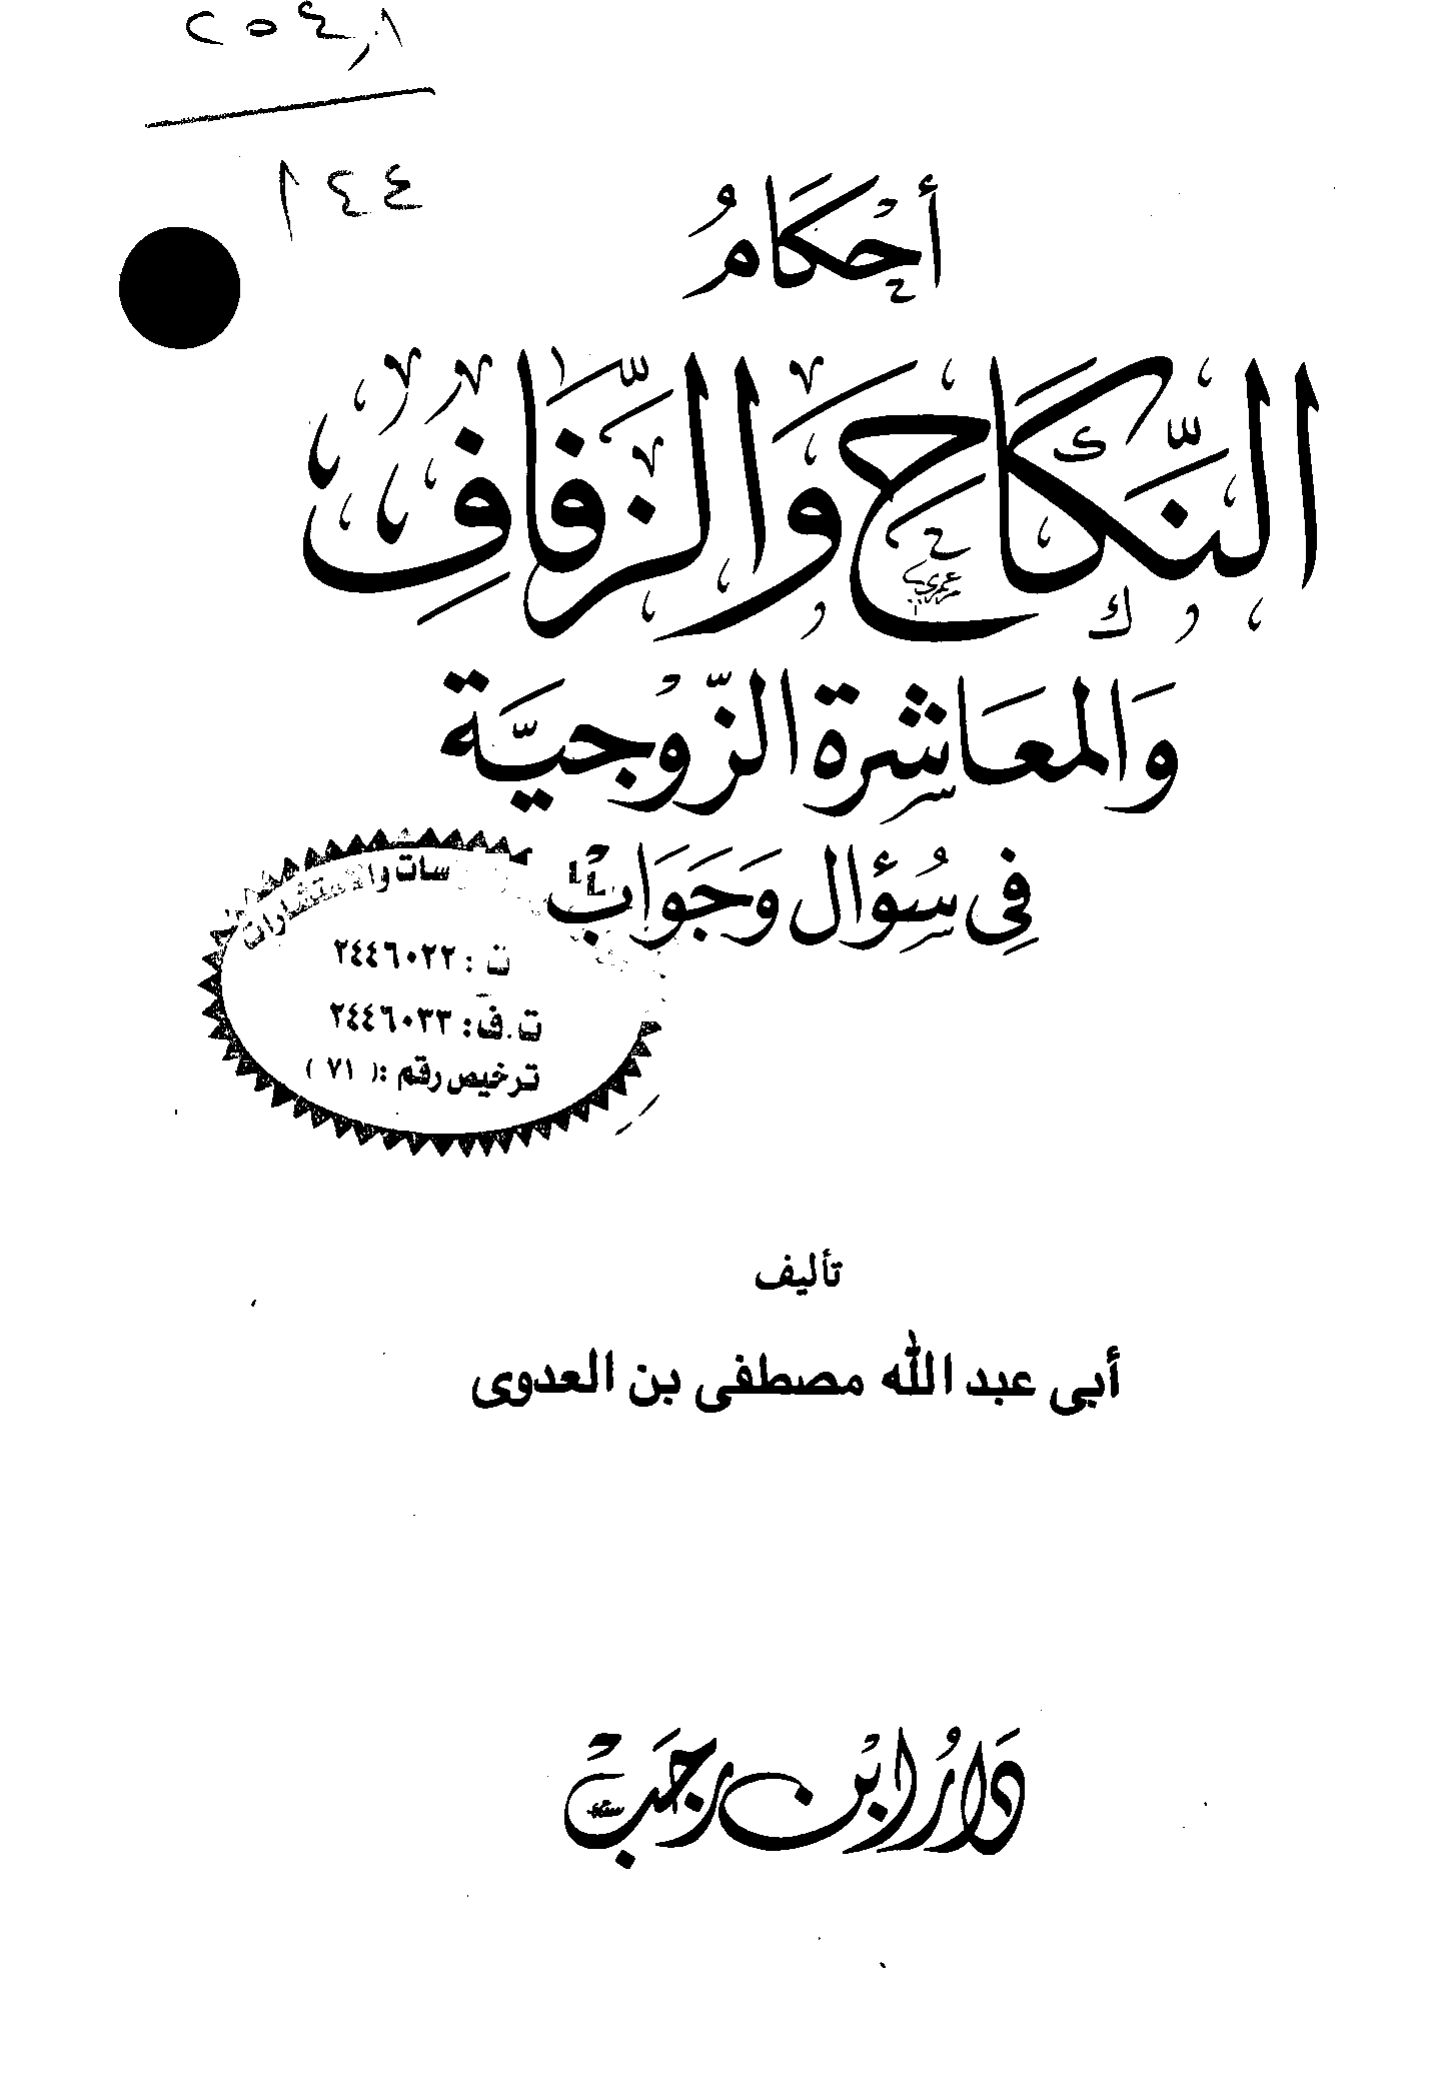 ٢٥٤,١
١٤٤
أَحْكَامُ
النِّكَاحِ وَالزِّفَافِ
وَالمعَاشرة الزّوْجيَّة
فِي سُؤال وَجَوَابْ
سات والاستشارات
ت : ٢٤٤٦٠٢٢
ت.ف: ٢٤٤٦٠٣٣
ترخيص رقم :( ٧١ )
تأليف
أبى عبد الله مصطفى بن العدوى
دَارُ ابْن رجَبْ